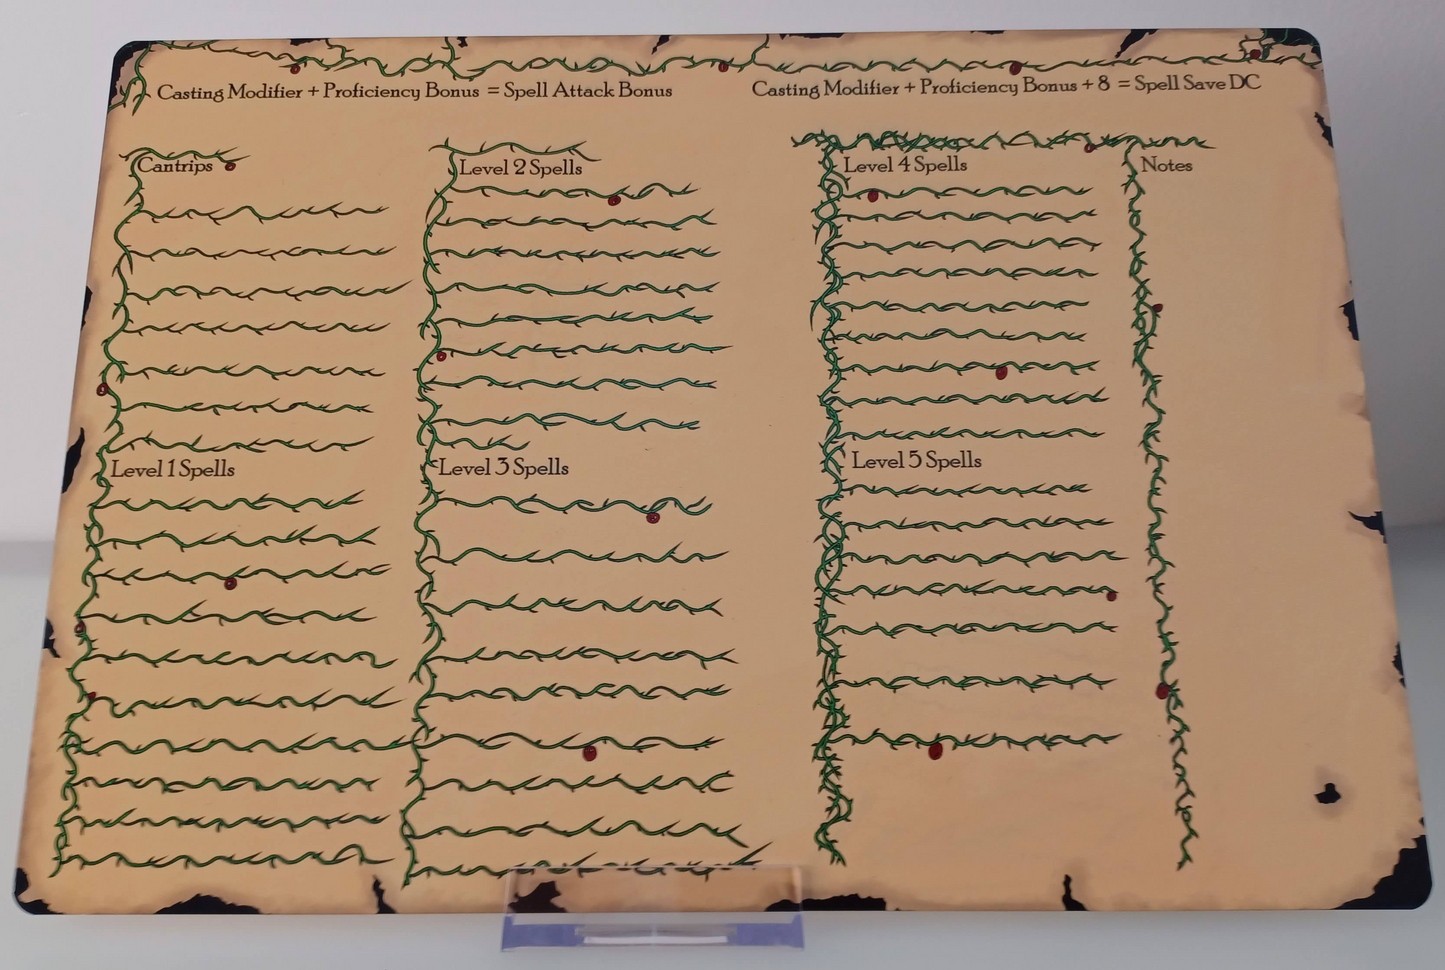 Casting Modifier + Proficiency Bonus = Spell Attack Bonus
Casting Modifier + Proficiency Bonus + 8 = Spell Save DC
Cantrips
Level 1 Spells
Level 2 Spells
Level 3 Spells
Level 4 Spells
Level 5 Spells
Notes